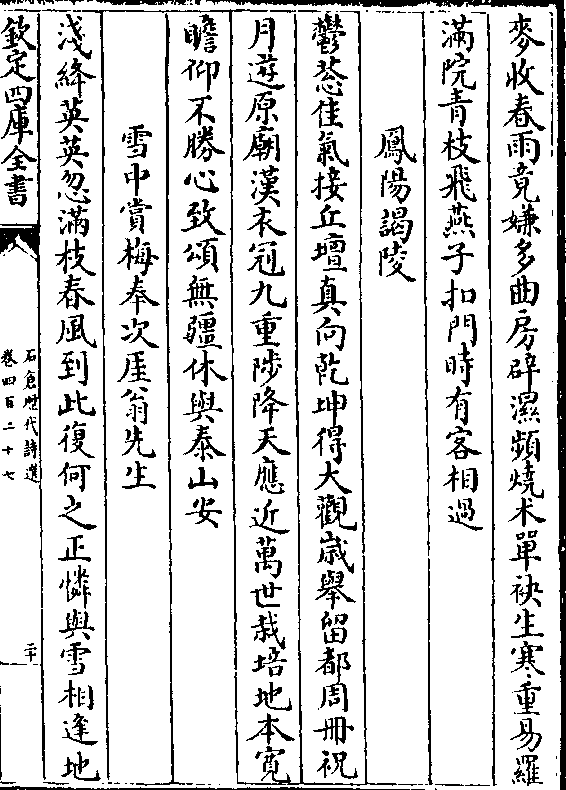 麥收春雨竟嫌多曲房辟濕頻燒术單袂生寒重易羅
滿院青枝飛燕子扣門時有客相過
鳳陽謁陵
鬱蔥佳氣接丘壇真向乾坤得大觀歲舉留都周冊祝
月遊原廟漢衣冠九重陟降天應近萬世栽培地本寛
瞻仰不勝心致頌無疆休與泰山安
雪中賞梅奉次厓翁先生
淺絳英英忽滿枝春風到此復何之正憐與雪相逢地
欽定四庫全書
石倉歷代詩選
卷四百二十七
二十